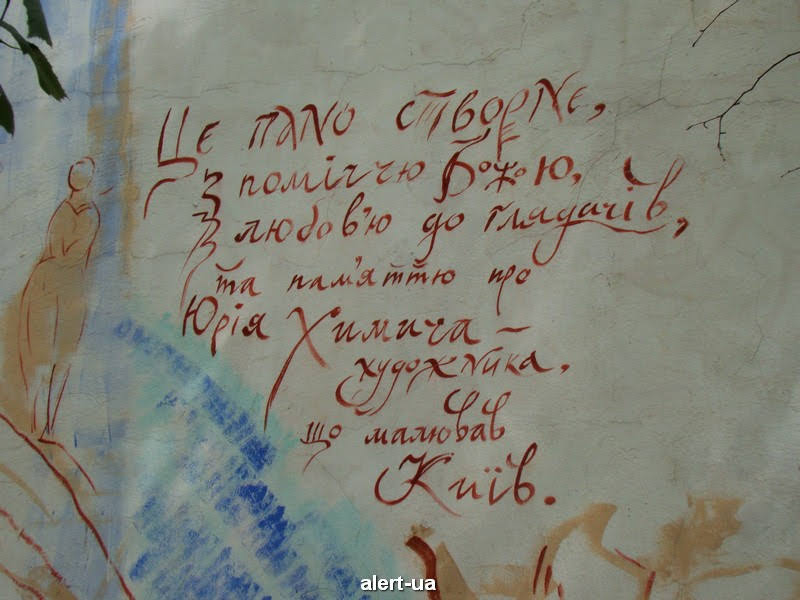 Це пано створене,
З поміччю Божою,
З любов'ю до глядачів,
та пам'яттю про
Юрія Химича –
художника,
що малював
Київ.
alert-ua